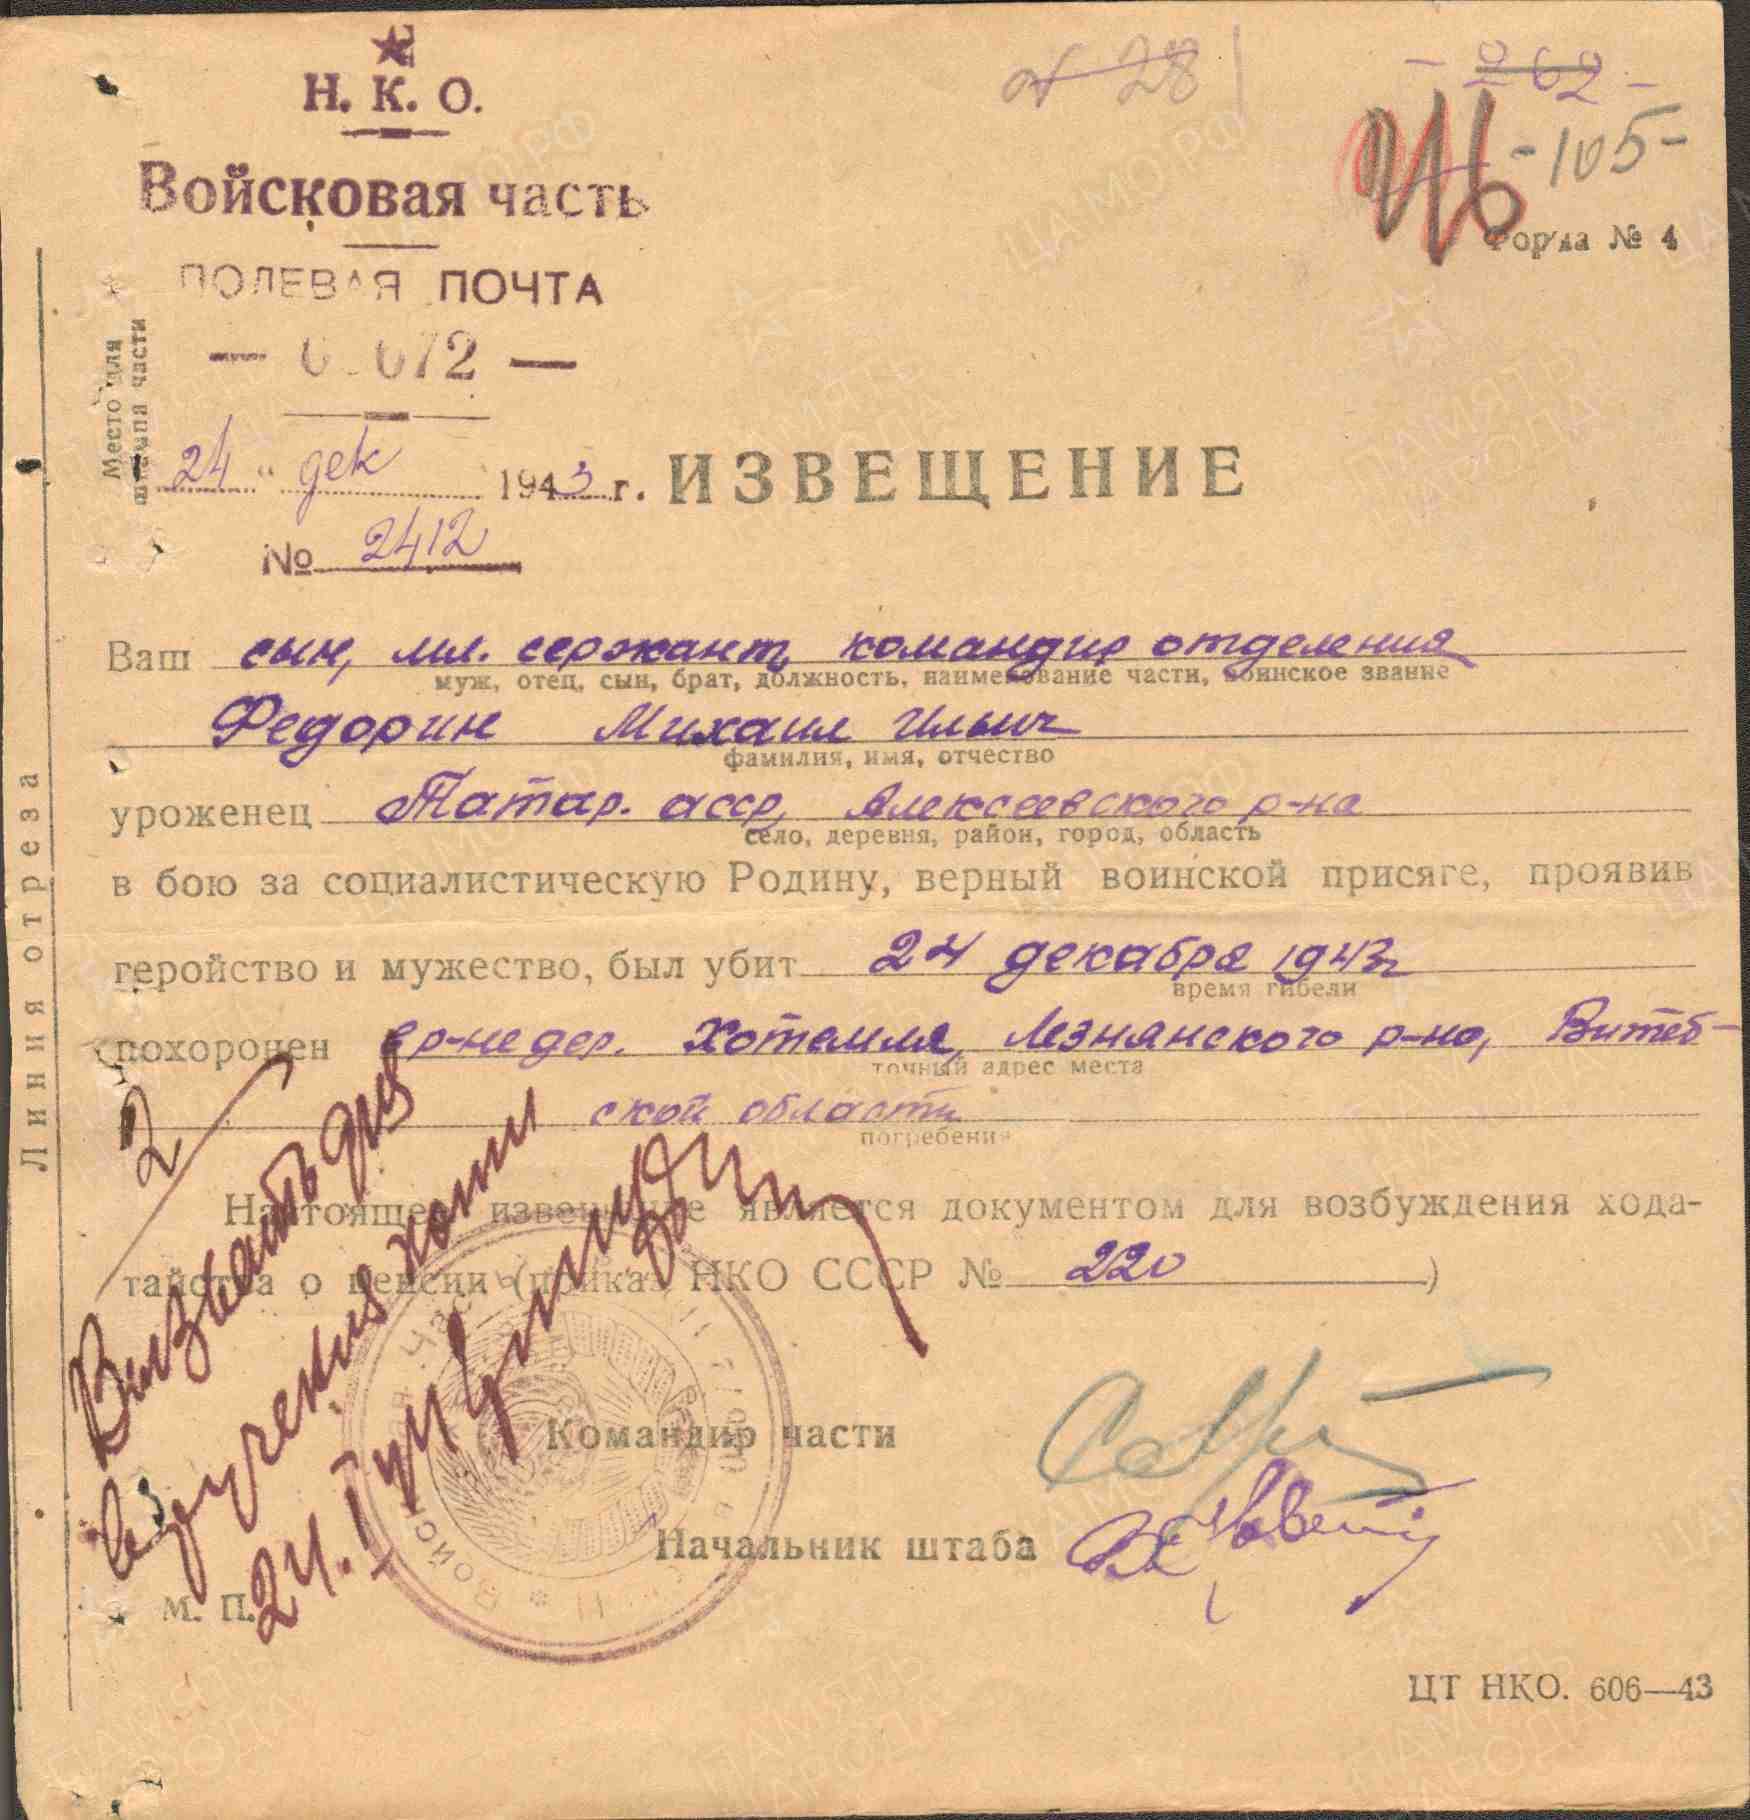 Н. К. О.
Войсковая часть
ПОЛЕВАЯ ПОЧТА
Место для
штампа части
24 " дек 1943 г.
№ 2412
№ 28
- 262 -
- 105 -
Форма № 4
ИЗВЕЩЕНИЕ
Ваш сын, мл. сержант, командир отделения
муж, отец, сын, брат, должность, наименование части, воинское звание
Федорин Михаил Ильич
фамилия, имя, отчество
уроженец Татар. асср, Алексеевского р-на
село, деревня, район, город, область
в бою за социалистическую Родину, верный воинской присяге, проявив
геройство и мужество, был убит 24 декабря 1943г
время гибели
похоронен в р-не дер. Хотемля, Лезнянского р-на, Витеб-
точный адрес места
ской области
погребения
Настоящее извещение является документом для возбуждения хода-
тайства о пенсии (приказ НКО СССР № 220 )
2
Вызвать для
вручения копии
24.I
Командир части
Начальник штаба
М. П.
Линия отреза
ЦТ НКО. 606—43